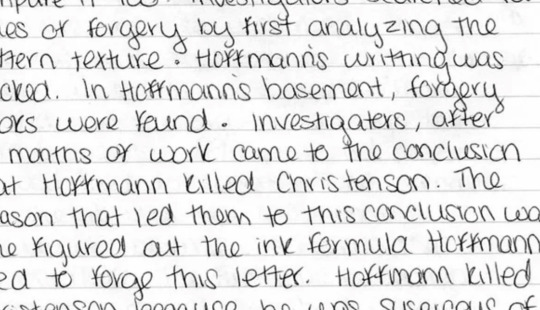 les of forgery by first analyzing the
tern texture. Hoffmann's writting was
cked. In Hoffmann's basement, forgery
oks were found. Investigaters, after
months of work came to the conclusion
at Hoffmann killed Christenson. The
ason that led them to this conclusion wa
he figured out the ink formula Hoffmann
ed to forge this letter. Hoffmann killed
because he was suspicous of